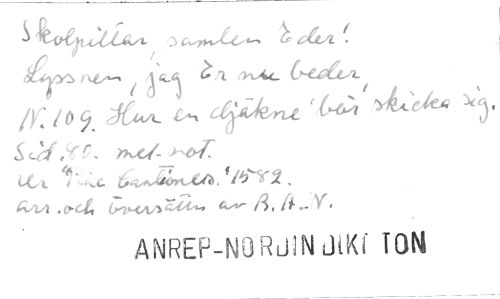 Skolpiltar, samlen Eder!
Lyssnen, jag Er nu beder,
N. 109. Hur en djäkne bör skicka sig.
Sid. 80. mel-not.
ur "Piae Cantiones" 1582.
arr. och översättn av B. A-N.
ANREP-NORDIN DIKT TON